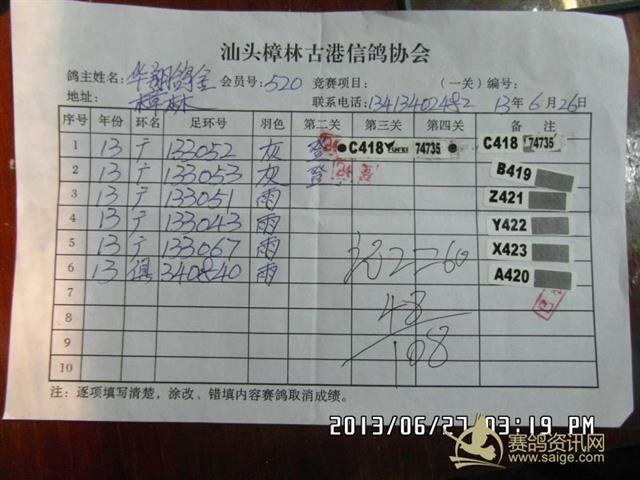 汕头樟林古港信鸽协会
鸽主姓名: 华翔鸽舍 会员号: 520 竞赛项目: (一关) 编号:
地址: 樟林 联系电话: 13413402482 13年6月26日
序号 年份 环名 足环号 羽色 第二关 第三关 第四关 备注
1 13 广 133052 灰 登 C418 74735 C418 74735
2 13 广 133053 灰 登 B419
3 13 广 133051 雨 Z421
4 13 广 133043 雨 Y422
5 13 广 133067 雨 X423
6 13 340840 雨 A420
2=60
7
48
8
108
9
10
注: 逐项填写清楚, 涂改、错填内容赛鸽取消成绩。
2013/06/27 03:19 PM
赛鸽资讯网
www.saige.com